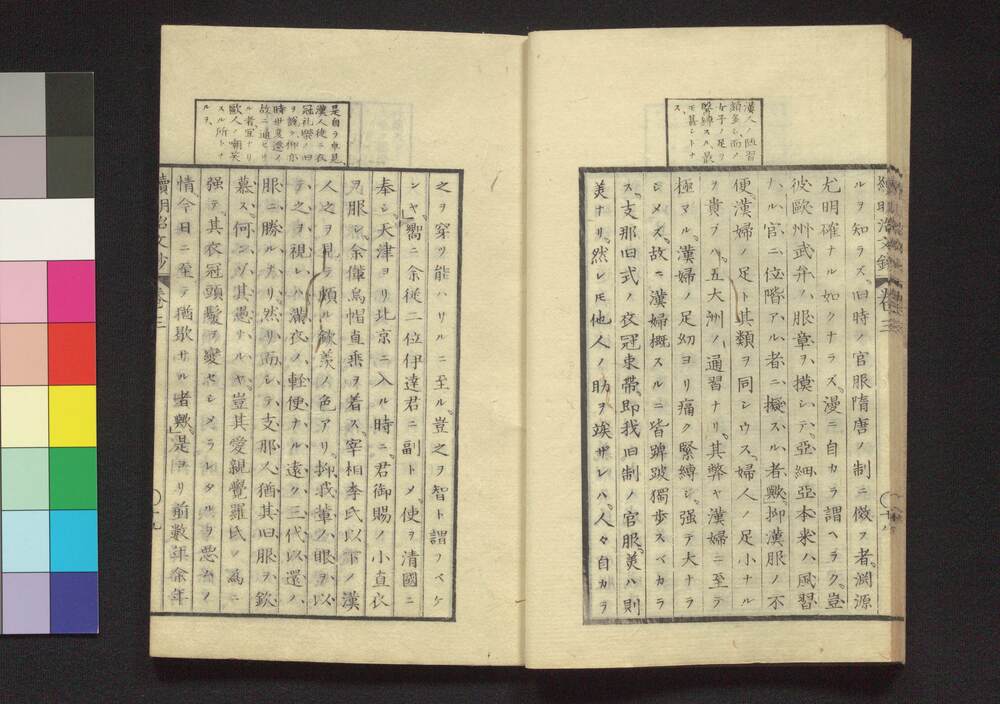 漢人ノ陋習
頗多シ而ノ
女子ノ足ヲ
緊縛スル最
モ甚シトナ
ス
續明治文鈔 卷三
ルヲ知ラズ旧時ノ官服隋唐ノ制ニ倣フ者淵源
尤明確ナル如クナラズ漫ニ自カラ謂ヘラク豈
彼歐州武弁ノ服章ヲ摸シテ亞細亞本来ハ風習
ナル官ニ位階アル者ニ擬スル者歟抑漢服ノ不
便漢婦ノ足ト其類ヲ同シウス婦人ノ足小ナル
ヲ貴ブハ五大洲ノ通習ナリ其弊ヤ漢婦ニ至テ
極マル漢婦ノ足幼ヨリ痛ク緊縛シ强テ大ナラ
シメズ故ニ漢婦概スルニ皆跛獨歩スベカラ
ス支那旧式ノ衣冠束帶即我旧制ノ官服美ハ則
美ナリ然レ𪜈他人ノ助ヲ竢ザレハ人々自カラ
是自ラ卓見
漢人徒ニ衣
冠礼樂ノ旧
ヲ誇ル抑亦
時世変遷ノ
故ニ通セザ
ル者宜ナリ
歐人ノ嘲笑
スル所トナ
ルヲ
之ヲ穿ツ能ハザルニ至ル豈之ヲ智ト謂フベケ
ンヤ嚮ニ余従二位伊達君ニ副トメ使ヲ清國ニ
奉シ天津ヨリ北京ニ入ル時ニ君御賜ノ小直衣
ヲ服シ余僅烏帽直垂ヲ着ス宰相李氏以下ノ漢
人之ヲ見テ頗ル欽羨ノ色アリ抑我輩ノ眼ヲ以
テ之ヲ視レハ満衣ノ軽便ナル遠ク三代以還ノ
服ニ勝ルナリ然リ而シテ支那人猶其旧服ヲ欽
慕ス何ンゾ其愚ナルヤ豈其愛親覺羅氏ノ為ニ
强テ其衣冠頭髪ヲ変セシメラレタルヲ悪ムノ
情今日ニ至テ猶歇サル者歟是ヨリ前数年余年
續明治文鈔 卷三 十九